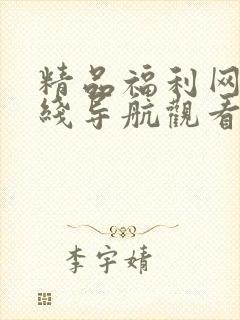 精品福利网
綫导航觀看
李宇婧